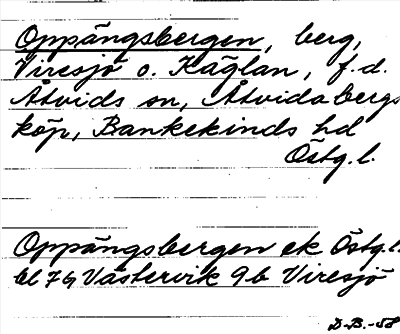 Oppängsbergen, berg,
Viresjö o. Käglan, f.d.
Åtvids sn, Åtvidabergs
köp, Bankekinds hd
Östg.l.
Oppängsbergen ek Östg.l.
bl 76 Västervik 9b Viresjö
D.B.-58